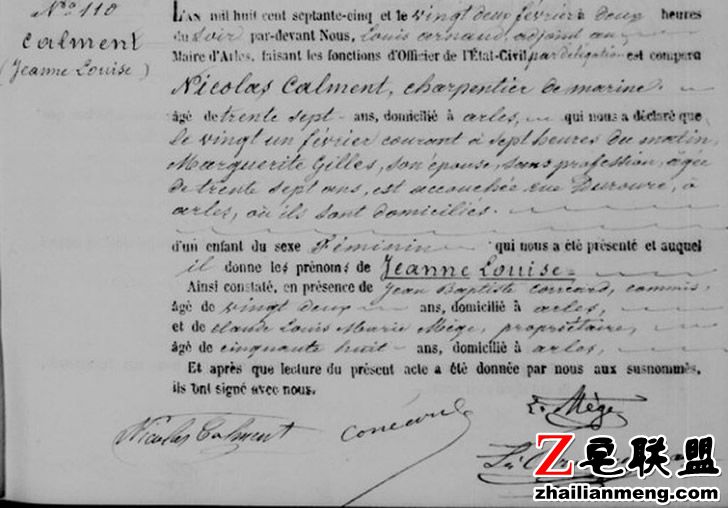 N° 110
Calment
(Jeanne Louise)
L'AN mil huit cent septante-cinq et le vingt deux février à deux heures
du Soir par-devant Nous, Louis Arnaud, adjoint au
Maire d'Arles, faisant les fonctions d'Officier de l'État-Civil, par délégation est comparu
Nicolas Calment, charpentier de marine
âgé de trente sept ans, domicilié à arles, qui nous a déclaré que
le vingt un février courant à sept heures du matin,
Marguerite Gilles, son épouse, sans profession, âgée
de trente sept ans, est accouchée rue Duroure, à
arles, où ils sont domiciliés.
d'un enfant du sexe Féminin qui nous a été présenté et auquel
il donne les prénoms de Jeanne Louise
Ainsi constaté, en présence de Jean Baptiste Corréard, commis,
âgé de vingt deux ans, domicilié à arles,
et de Claude Louis Marie Mège, propriétaire,
âgé de cinquante huit ans, domicilié à arles,
Et après que lecture du présent acte a été donnée par nous aux susnommés,
ils ont signé avec nous.
Nicolas Calment
Corréard
L. Mège
Z宅联盟
zhailianmeng.com